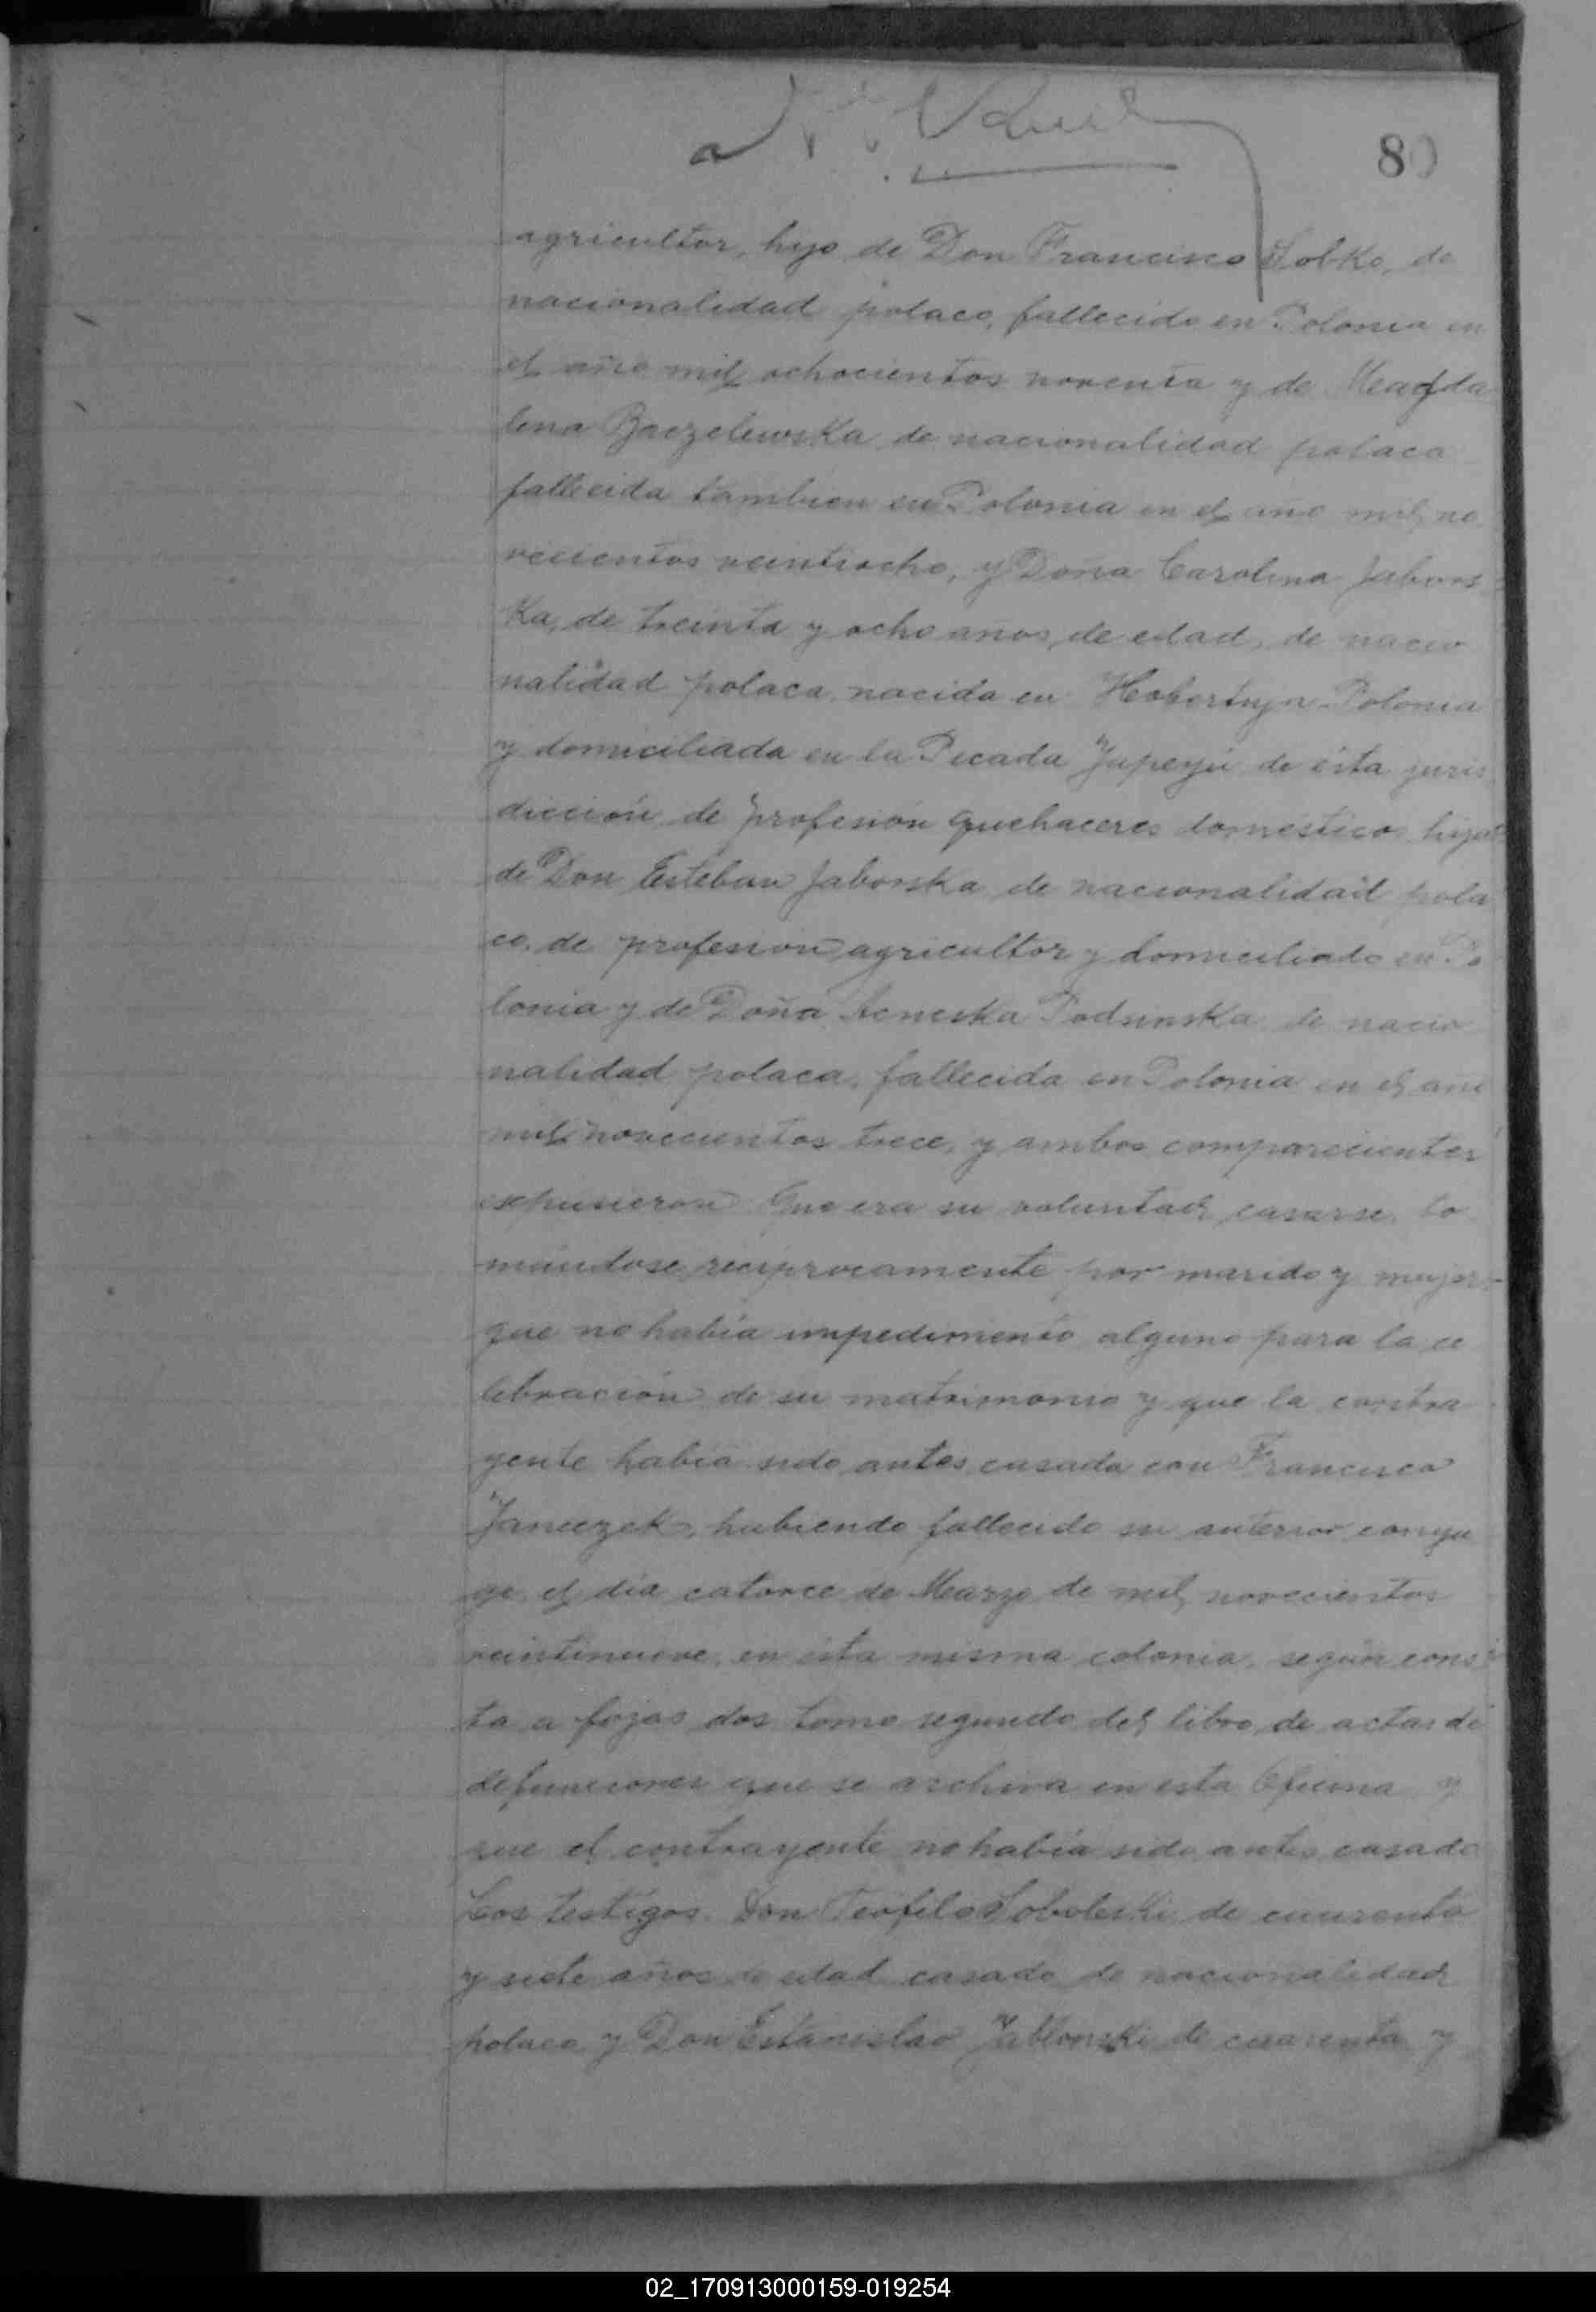 80
agricultor, hijo de Don Francisco Sobko, de
nacionalidad polaco, fallecido en Polonia en
el año mil ochocientos noventa y de Magda
lena Baczelewska de nacionalidad polaca
fallecida tambien en Polonia en el año mil no
vecientos veintiocho, y Doña Carolina Jabors
ka, de treinta y ocho años de edad, de nacio
nalidad polaca nacida en Hobertyn Polonia
y domiciliada en la Picada Yapeyú de ésta juris
dicción de profesión quehaceres domesticos hija
de Don Esteban Jaborska de nacionalidad pola
co, de profesion agricultor y domiciliado en Po
lonia y de Doña Acneska Podsinska de nacio
nalidad polaca, fallecida en Polonia en el año
mil novecientos trece, y ambos comparecientes
expusieron Que era su voluntad casarse, to
mándose reciprocamente por marido y mujer
que no había impedimento alguno para la ce
lebración de su matrimonio y que la contra
yente había sido antes casada con Francisco
Janeczek, habiendo fallecido su anterior conyu
ge el día catorce de Marzo de mil novecientos
veintinueve, en ésta misma colonia, según cons
ta a fojas dos tomo segundo del libro de actas de
defunciones que se archiva en esta Oficina y
que el contrayente no había sido antes casado
Los testigos Don Teofilo Soboleski de cuarenta
y siete años de edad casado de nacionalidad
polaco y Don Estanislao Jablonski de cuarenta y
02_170913000159-019254